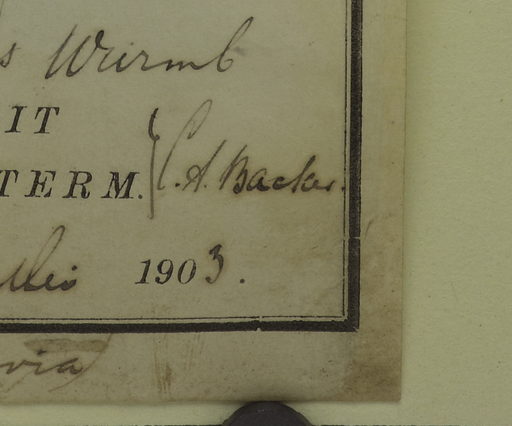 s Wurmb
IT
TERM. C. A. Backer.
Mei 1903.
via